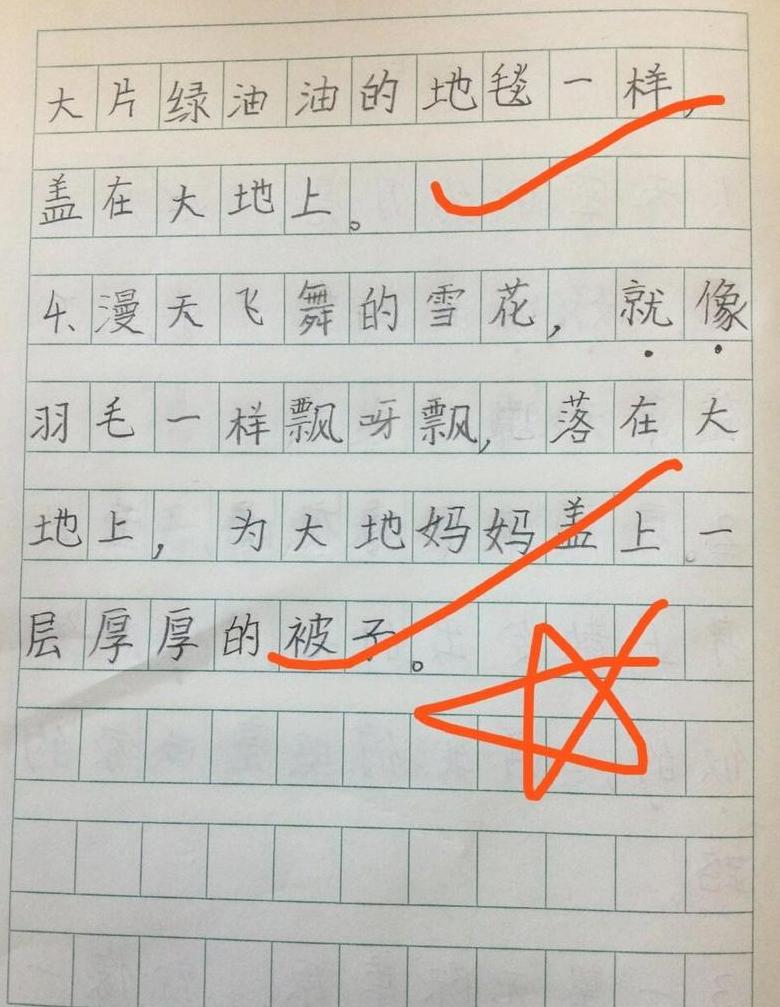 大片绿油油的地毯一样，
盖在大地上。
4、漫天飞舞的雪花，就像
羽毛一样飘呀飘，落在大
地上，为大地妈妈盖上一
层厚厚的被子。